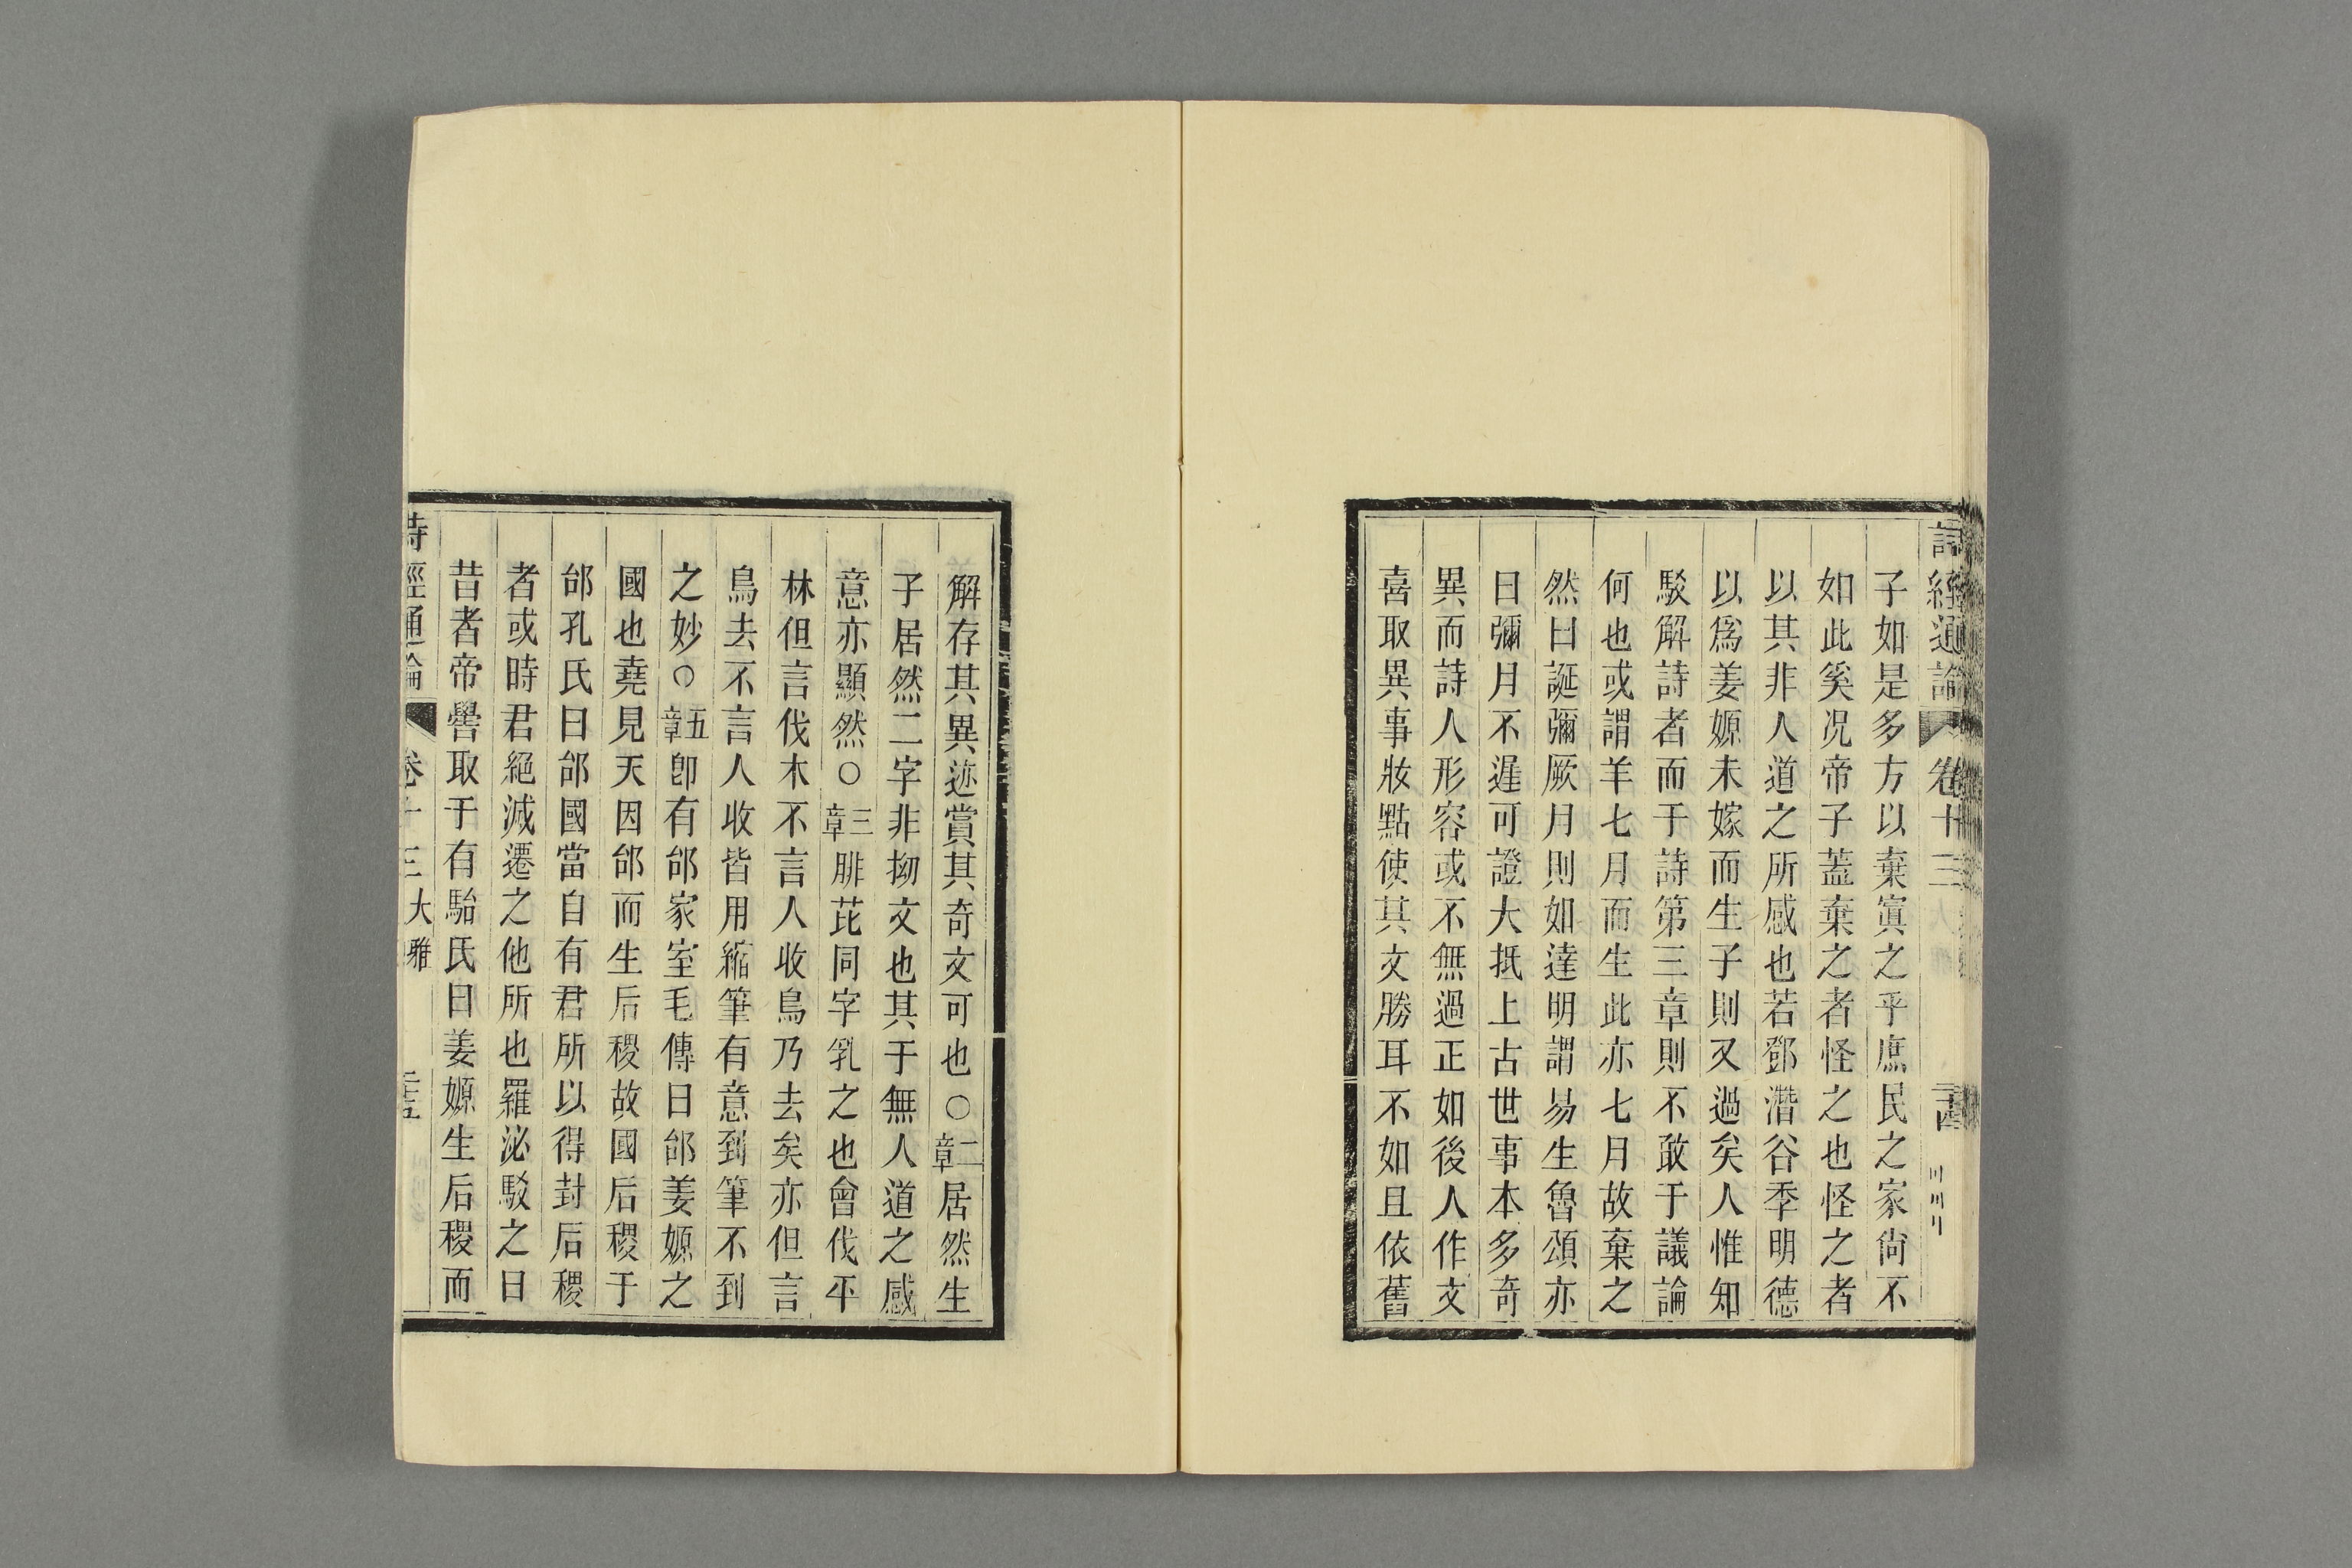 詩經通論 卷十三 二十四
子如是多方以棄寘之乎庶民之家尙不
如此奚况帝子蓋棄之者怪之也怪之者
以其非人道之所感也若鄧潛谷季明德
以爲姜嫄未嫁而生子則又過矣人惟知
駁解詩者而于詩第三章則不敢于議論
何也或謂羊七月而生此亦七月故棄之
然曰誕彌厥月則如達明謂易生魯頌亦
曰彌月不遲可證大抵上古世事本多奇
異而詩人形容或不無過正如後人作文
喜取異事妝點使其文勝耳不如且依舊
解存其異迹賞其奇文可也○二章居然生
子居然二字非拗文也其于無人道之感
意亦顯然○三章腓芘同字乳之也會伐平
林但言伐木不言人收鳥乃去矣亦但言
鳥去不言人收皆用縮筆有意到筆不到
之妙○五章卽有邰家室毛傳曰邰姜嫄之
國也堯見天因邰而生后稷故國后稷于
邰孔氏曰邰國當自有君所以得封后稷
者或時君絕滅遷之他所也羅泌駁之曰
昔者帝嚳取于有駘氏曰姜嫄生后稷而
詩經通論 卷十三 大雅 二十五